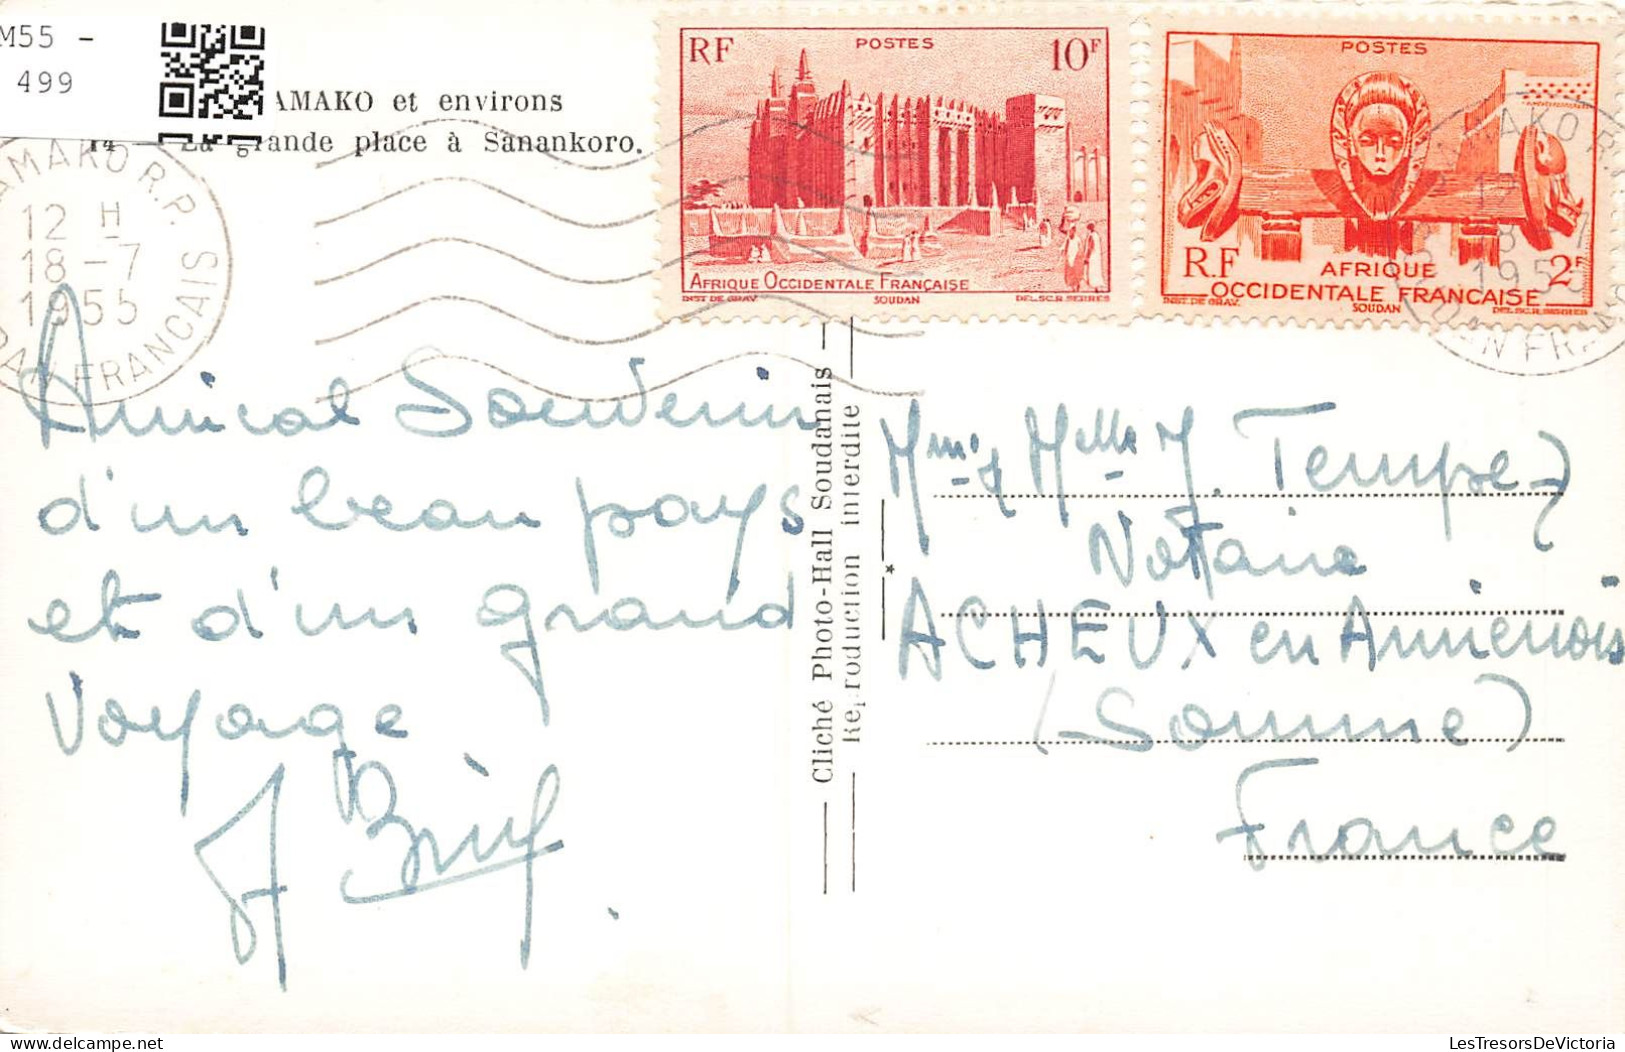 M55 -
499
AMAKO et environs
14 — La grande place à Sanankoro.
AMAKO R.P.
12 H
18 -7
1955
DAN FRANCAIS
RF
POSTES
10F
AFRIQUE OCCIDENTALE FRANÇAISE
INST DE GRAV.
SOUDAN
DEL.SC.R SERRES
POSTES
R.F
AFRIQUE
2F
OCCIDENTALE FRANÇAISE
INST. DE GRAV.
SOUDAN
DEL. SC. R. SERRES
MAKO R.P.
12
18 -7
1955
DAN FRAN
Amical Souvenir
d'un beau pays
et d'un grand
Voyage
Cliché Photo-Hall Soudanais
Reproduction interdite
Mme & Melle J. Tempez
Notaire
ACHEUX en Amienois
(Somme)
France
delcampe.net
LesTresorsDeVictoria